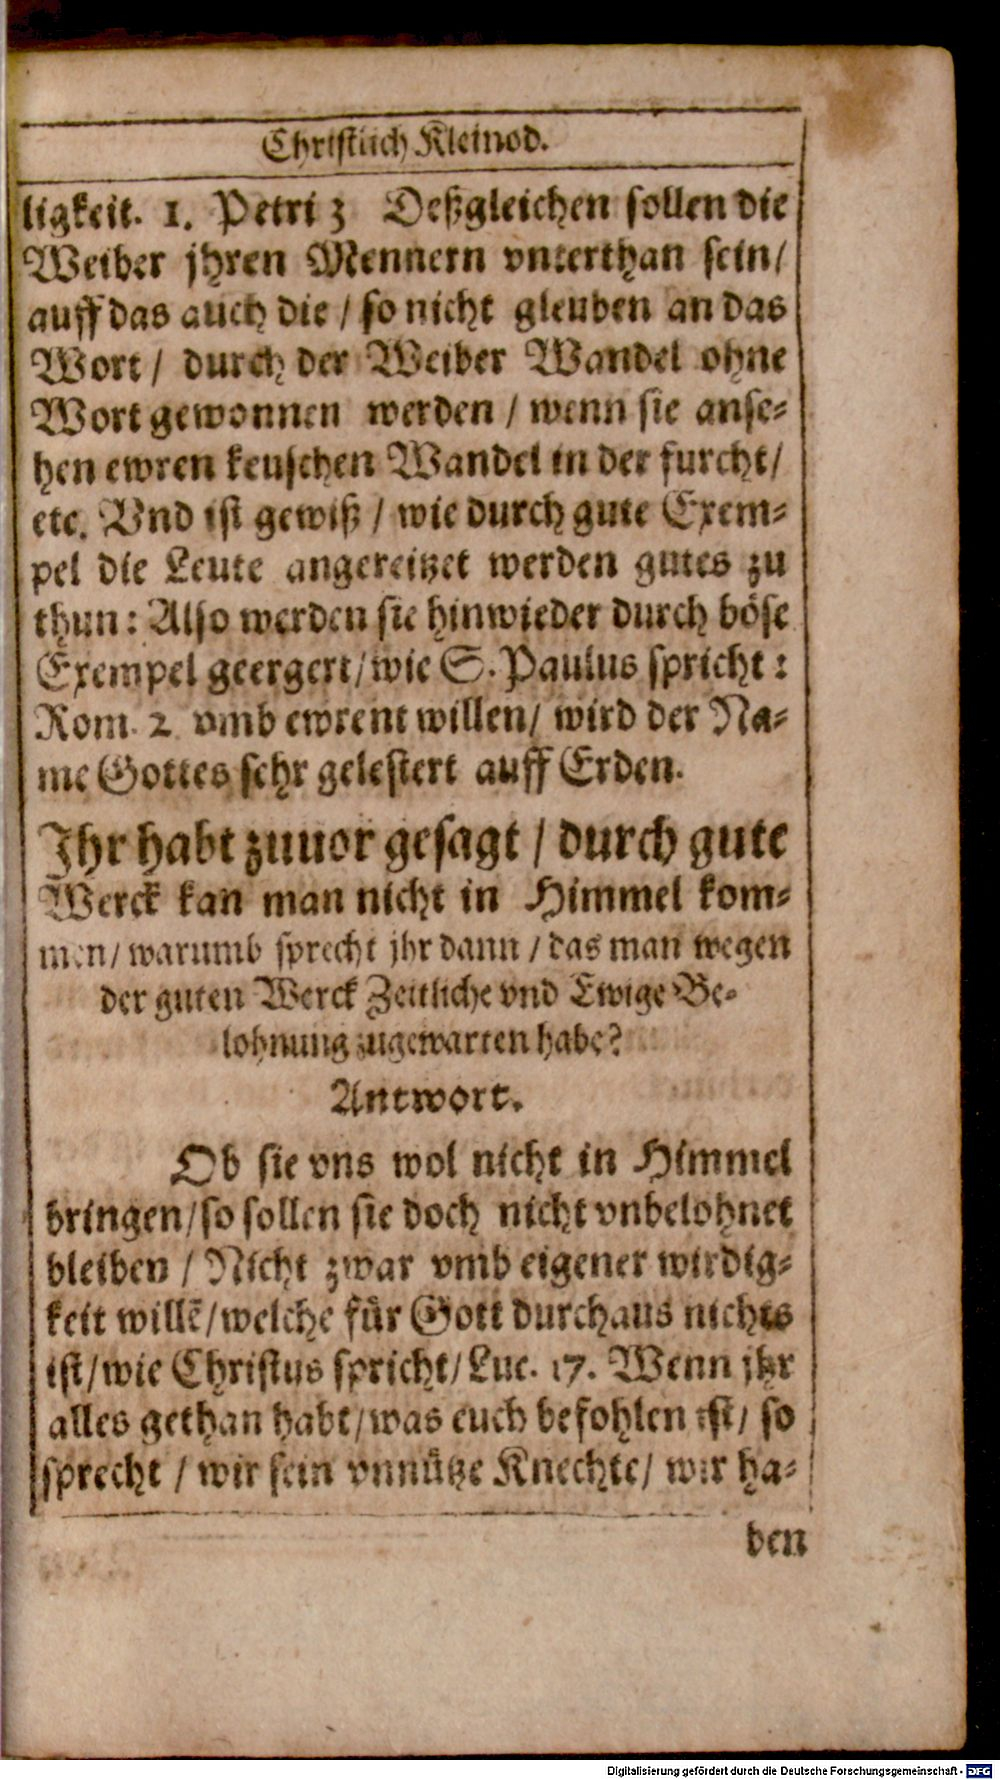 Christlich Kleinod.
ligkeit. 1. Petri 3 Deßgleichen sollen die
Weiber jhren Mennern vnterthan sein/
auff das auch die / so nicht gleuben an das
Wort / durch der Weiber Wandel ohne
Wort gewonnen werden / wenn sie anse-
hen ewren keuschen Wandel in der furcht/
etc. Vnd ist gewiß / wie durch gute Exem-
pel die Leute angereitzet werden gutes zu
thun: Also werden sie hinwieder durch böse
Exempel geergert/wie S. Paulus spricht:
Rom. 2 vmb ewrent willen/ wird der Na-
me Gottes sehr gelestert auff Erden.
Ihr habt zuuor gesagt / durch gute
Werck kan man nicht in Himmel kom-
men/ warumb sprecht jhr dann / das man wegen
der guten Werck Zeitliche vnd Ewige Be-
lohnung zugewarten habe?
Antwort.
Ob sie vns wol nicht in Himmel
bringen/so sollen sie doch nicht vnbelohnet
bleiben / Nicht zwar vmb eigener wirdig-
keit willẽ/welche für Gott durchaus nichts
ist/wie Christus spricht/Luc. 17. Wenn jhr
alles gethan habt/was euch befohlen ist/ so
sprecht / wir sein vnnütze Knechte/ wir ha-
ben
Digitalisierung gefördert durch die Deutsche Forschungsgemeinschaft - DFG